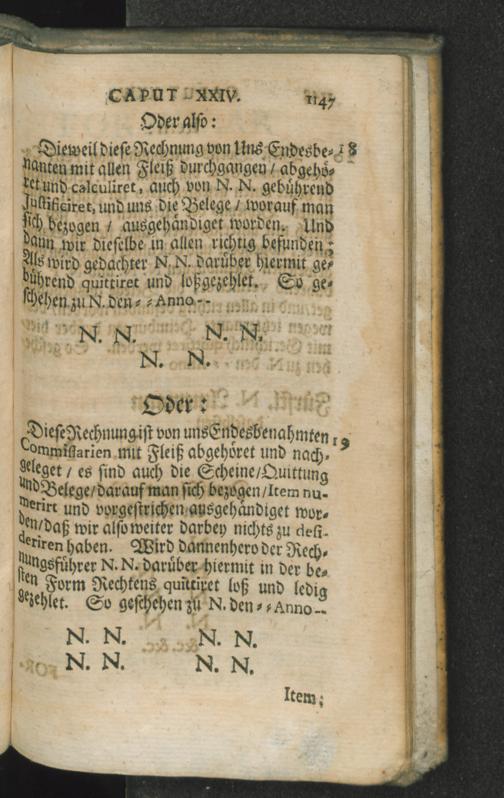 CAPUT XXIV. 1147
Oder also:
Dieweil diese Rechnung von Uns Endesbe- 18
nanten mit allen Fleiß durchgangen / abgehö-
ret und calculiret, auch von N. N. gebührend
Justificiret, und uns die Belege / worauf man
sich bezogen / ausgehändiget worden. Und
dann wir dieselbe in allen richtig befunden;
Als wird gedachter N. N. darüber hiermit ge-
bührend quittiret und loßgezehlet. So ge-
schehen zu N. den - - Anno --
N. N. N. N.
N. N.
Oder:
Diese Rechnung ist von uns Endesbenahmten 19
Commissarien mit Fleiß abgehöret und nach-
geleget / es sind auch die Scheine / Quittung
und Belege / darauf man sich bezogen / Item nu-
merirt und vorgestrichen ausgehändiget wor-
den / daß wir also weiter darbey nichts zu desi-
deriren haben. Wird dannenhero der Rech-
nungsführer N. N. darüber hiermit in der be-
sten Form Rechtens quittiret loß und ledig
gezehlet. So geschehen zu N. den - - Anno --
N. N. N. N.
N. N. N. N.
Item;